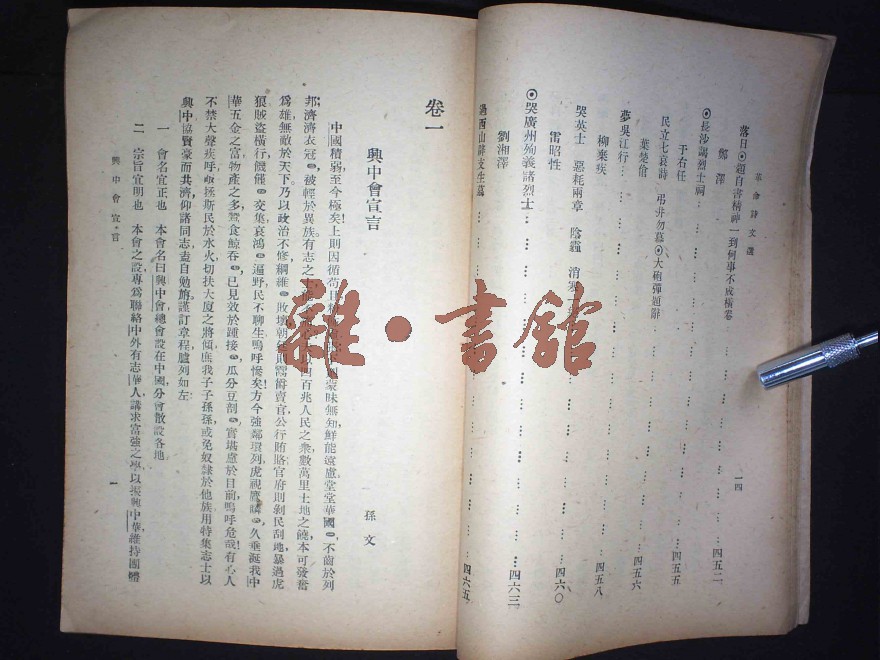 革命詩文選
落日◎題自書精神一到何事不成橫卷……四五二
鄭澤
◎長沙謁烈士祠……四五五
于右任
民立七哀詩 弔井勿幕◎大砲彈題辭……四五六
葉楚傖
夢吳江行……四五八
柳棄疾
哭英士 惡耗兩章 陰霾 消寒……四六〇
雷昭性
◎哭廣州殉義諸烈士……四六三
劉湘澤
過西山 生墓……四六五
一四
卷一
興中會宣言
孫文
中國積弱,至今極矣!上則因循苟且 蒙昧無知,鮮能遠慮堂堂華國,不齒於列
邦;濟濟衣冠,被輕於異族。有志之士 四百兆人民之衆,數萬里土地之饒,本可發奮
爲雄,無敵於天下。乃以政治不修,綱維敗壞,朝廷則鬻爵賣官,公行賄賂,官府則剝民刮地,暴過虎
狼。賊盜橫行,饑饉交集,哀鴻遍野,民不聊生,嗚呼慘矣!方今強鄰環列,虎視鷹瞵,久垂涎我中
華五金之富,物產之多,蠶食鯨吞,已見效於踵接,瓜分豆剖,實堪慮於目前。嗚呼危哉!有心人
不禁大聲疾呼,亟拯斯民於水火,切扶大廈之將傾。庶我子子孫孫,或免奴隸於他族。用特集志士以
興中,協賢豪而共濟,仰諸同志,盍自勉旃。謹訂章程,臚列如左:
一 會名宜正也 本會名曰興中會,總會設在中國,分會散設各地
二 宗旨宜明也 本會之設,專爲聯絡中外有志華人,講求富強之學,以振興中華,維持團體
興中會宣言
一
雜·書館